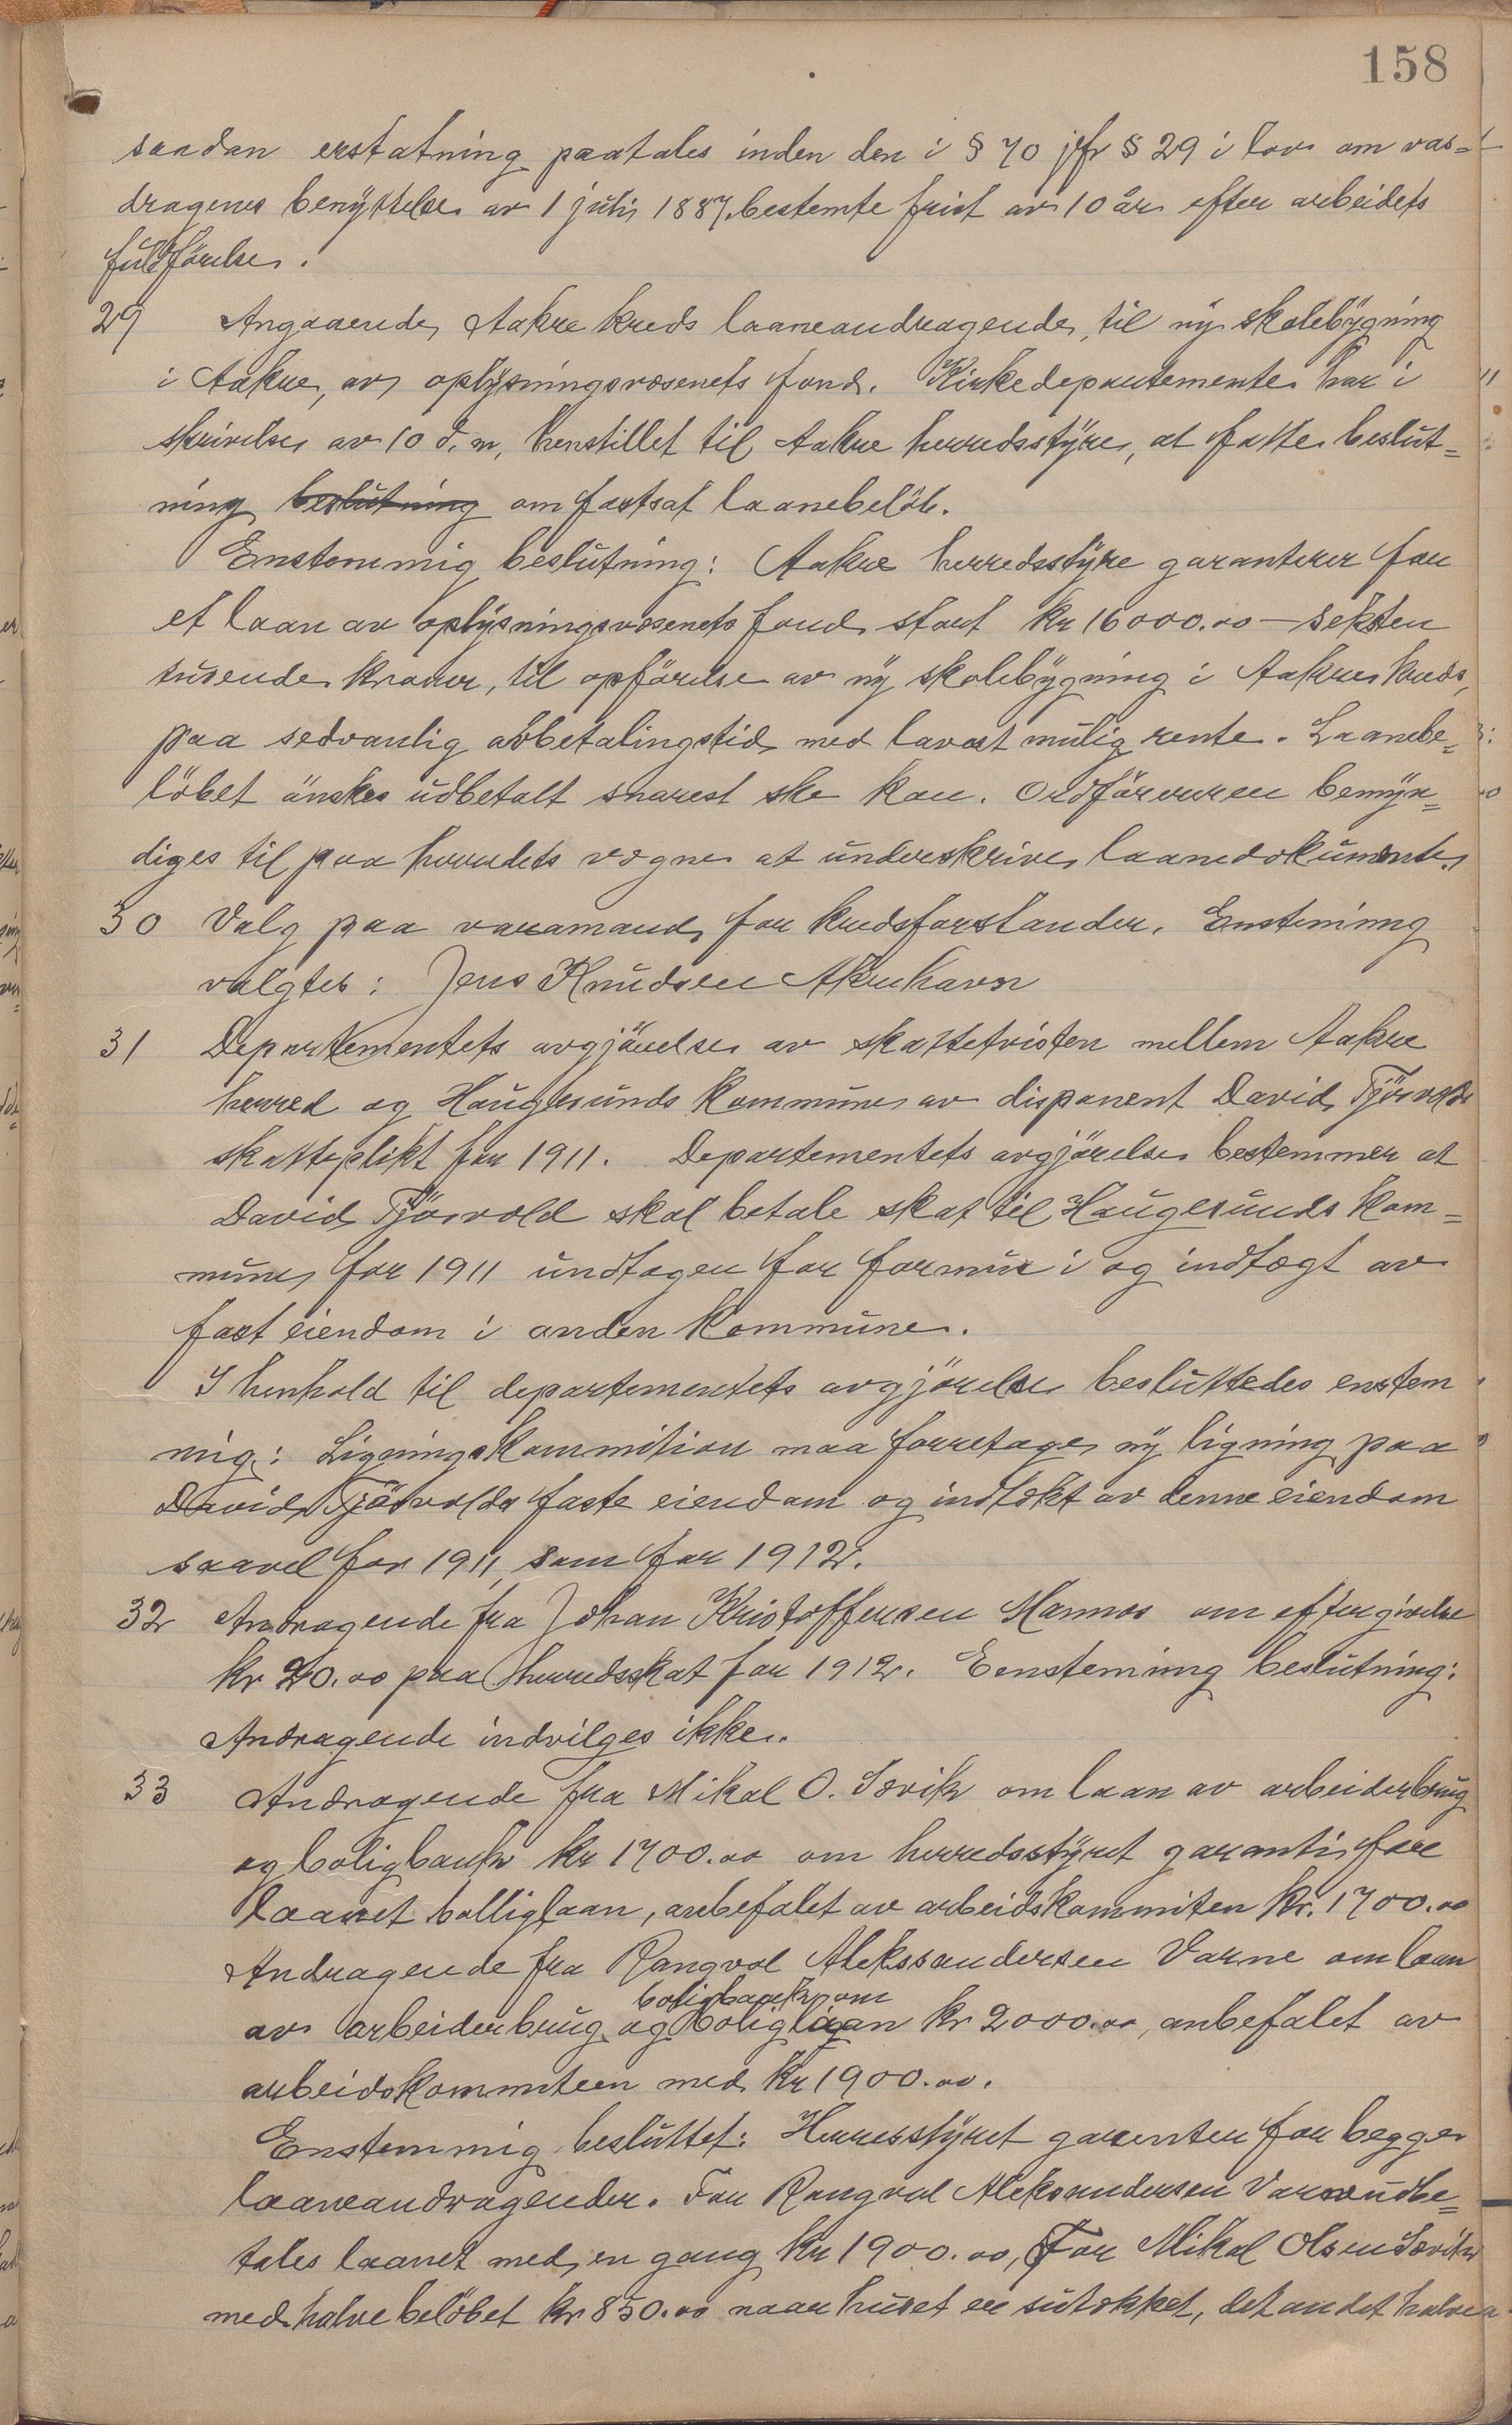 158
saadan erstatning paatales inden den i § 70 jfr § 29 i lov om vas=
dragenes benyttelse av 1 juli 1887, bestemte frist av 10 år efter arbeidets
fuldförelse.
29 Angaaende Aakre kreds laaneandragende, til ny skolebygning
i Aakre, av oplysningsvæsenets fond. Kirkedepartemente har i
skrivelse av 10 d. m, henstillet til Aakre herredsstyre, at fatte beslut=
ning beslutning om fastsat laanebelöb.
Enstemmig beslutning: Aakre herredsstyre garanterer for
et laan av oplysningsvæsenets fond stort kr 16000.00 — seksten
tusende kroner, til opförelse av ny skolebygning i Aakre kreds,
paa sedvanlig avbetalingstid med lavest mulig rente. Laanebe=
löbet önskes udbetalt snarest ske kan. Ordföreren bemyn=
diges til paa herredets vegne at underskrive laanedokumente.
30 Valg paa varamand for kredsforstander. Enstemmig
valgtes: Jens Knudsen Akrehavn
31 Departementets avgjörelse av skattetvisten mellem Aakre
herred og Haugesunds kommune av disponent David Tjösvolds
skatteplikt for 1911. Departementets avgjörelse bestemmer at
David Tjösvold skal betale skat til Haugesunds kom=
mune for 1911 undtagen for formue i og indtægt av
fast eiendom i anden kommune.
I henhold til departementets avgjörelse besluttedes enstem
mig: Ligningskommition maa forretage ny ligning paa
David Tjösvolds faste eiendom og indtækt av denne eiendom
saavel for 1911, som for 1912.
32 Andragende fra Johan Kristoffersen Mannes om eftergivelse
kr 20.00 paa herredsskat for 1912. Eenstemmig beslutning:
Andragende indvilges ikke.
33 Andragende fra Mikal O. Sævik om laan av arbeiderbrug
og boligbank kr 1700.00 om herredsstyret garanti for
laanet bolliglaan, anbefalet av arbeidskommiten kr. 1700.00
Andragende fra Rangval Alekssandersen Varne om laan
boligbank om
av arbeiderbrug og boliglaan kr 2000.00, anbefalet av
arbeidskommiteen med kr 1900.00.
Enstemmig besluttet: Herresstyret garenter for begge
laaneandragender. For Rangval Aleksandersen Varne udbe=
tales laanet med en gang kr 1900.00, For Mikal Olsen Sævik
med halve belöbet kr 850.00 naar huset er sutækket, det andet halve